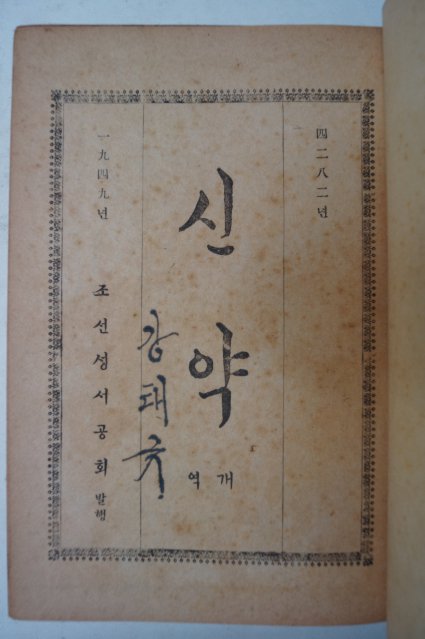 四二八二년
신약
개역
강태
一九四九년 조선성서공회 발행